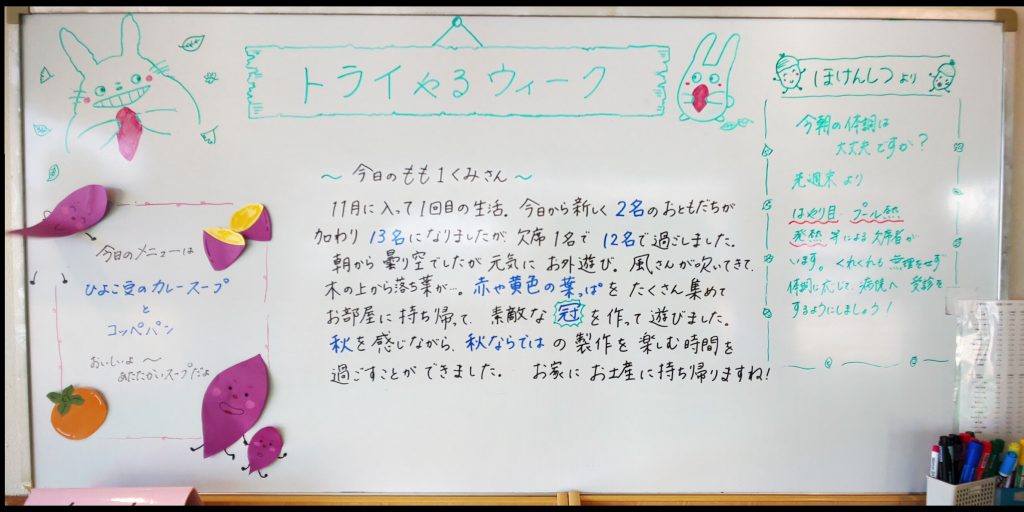 トライやるウィーク
今日のメニューは
ひよこ豆のカレースープ
と
コッペパン
おいしいよ〜
あたたかいスープだよ
〜 今日のもも1くみさん 〜
11月に入って1回目の生活。今日から新しく2名のおともだちが
加わり 13名になりましたが 欠席1名で 12名で過ごしました。
朝から曇り空でしたが 元気に お外遊び。風さんが吹いてきて、
木の上から落ち葉が…。赤や黄色の葉っぱを たくさん集めて
お部屋に持ち帰って、素敵な 冠 を作って遊びました。
秋を感じながら、秋ならではの製作を楽しむ時間を
過ごすことが できました。 お家に お土産に持ち帰りますね!
ほけんしつより
今朝の体調は
大丈夫ですか?
先週末より
はやり目 プール熱
発熱 等による欠席者が
います。くれぐれも 無理をせず
体調に応じて、病院へ 受診を
するようにしましょう!